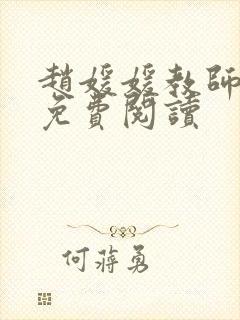 趙媛媛教師
免費閱讀
何蔣勇